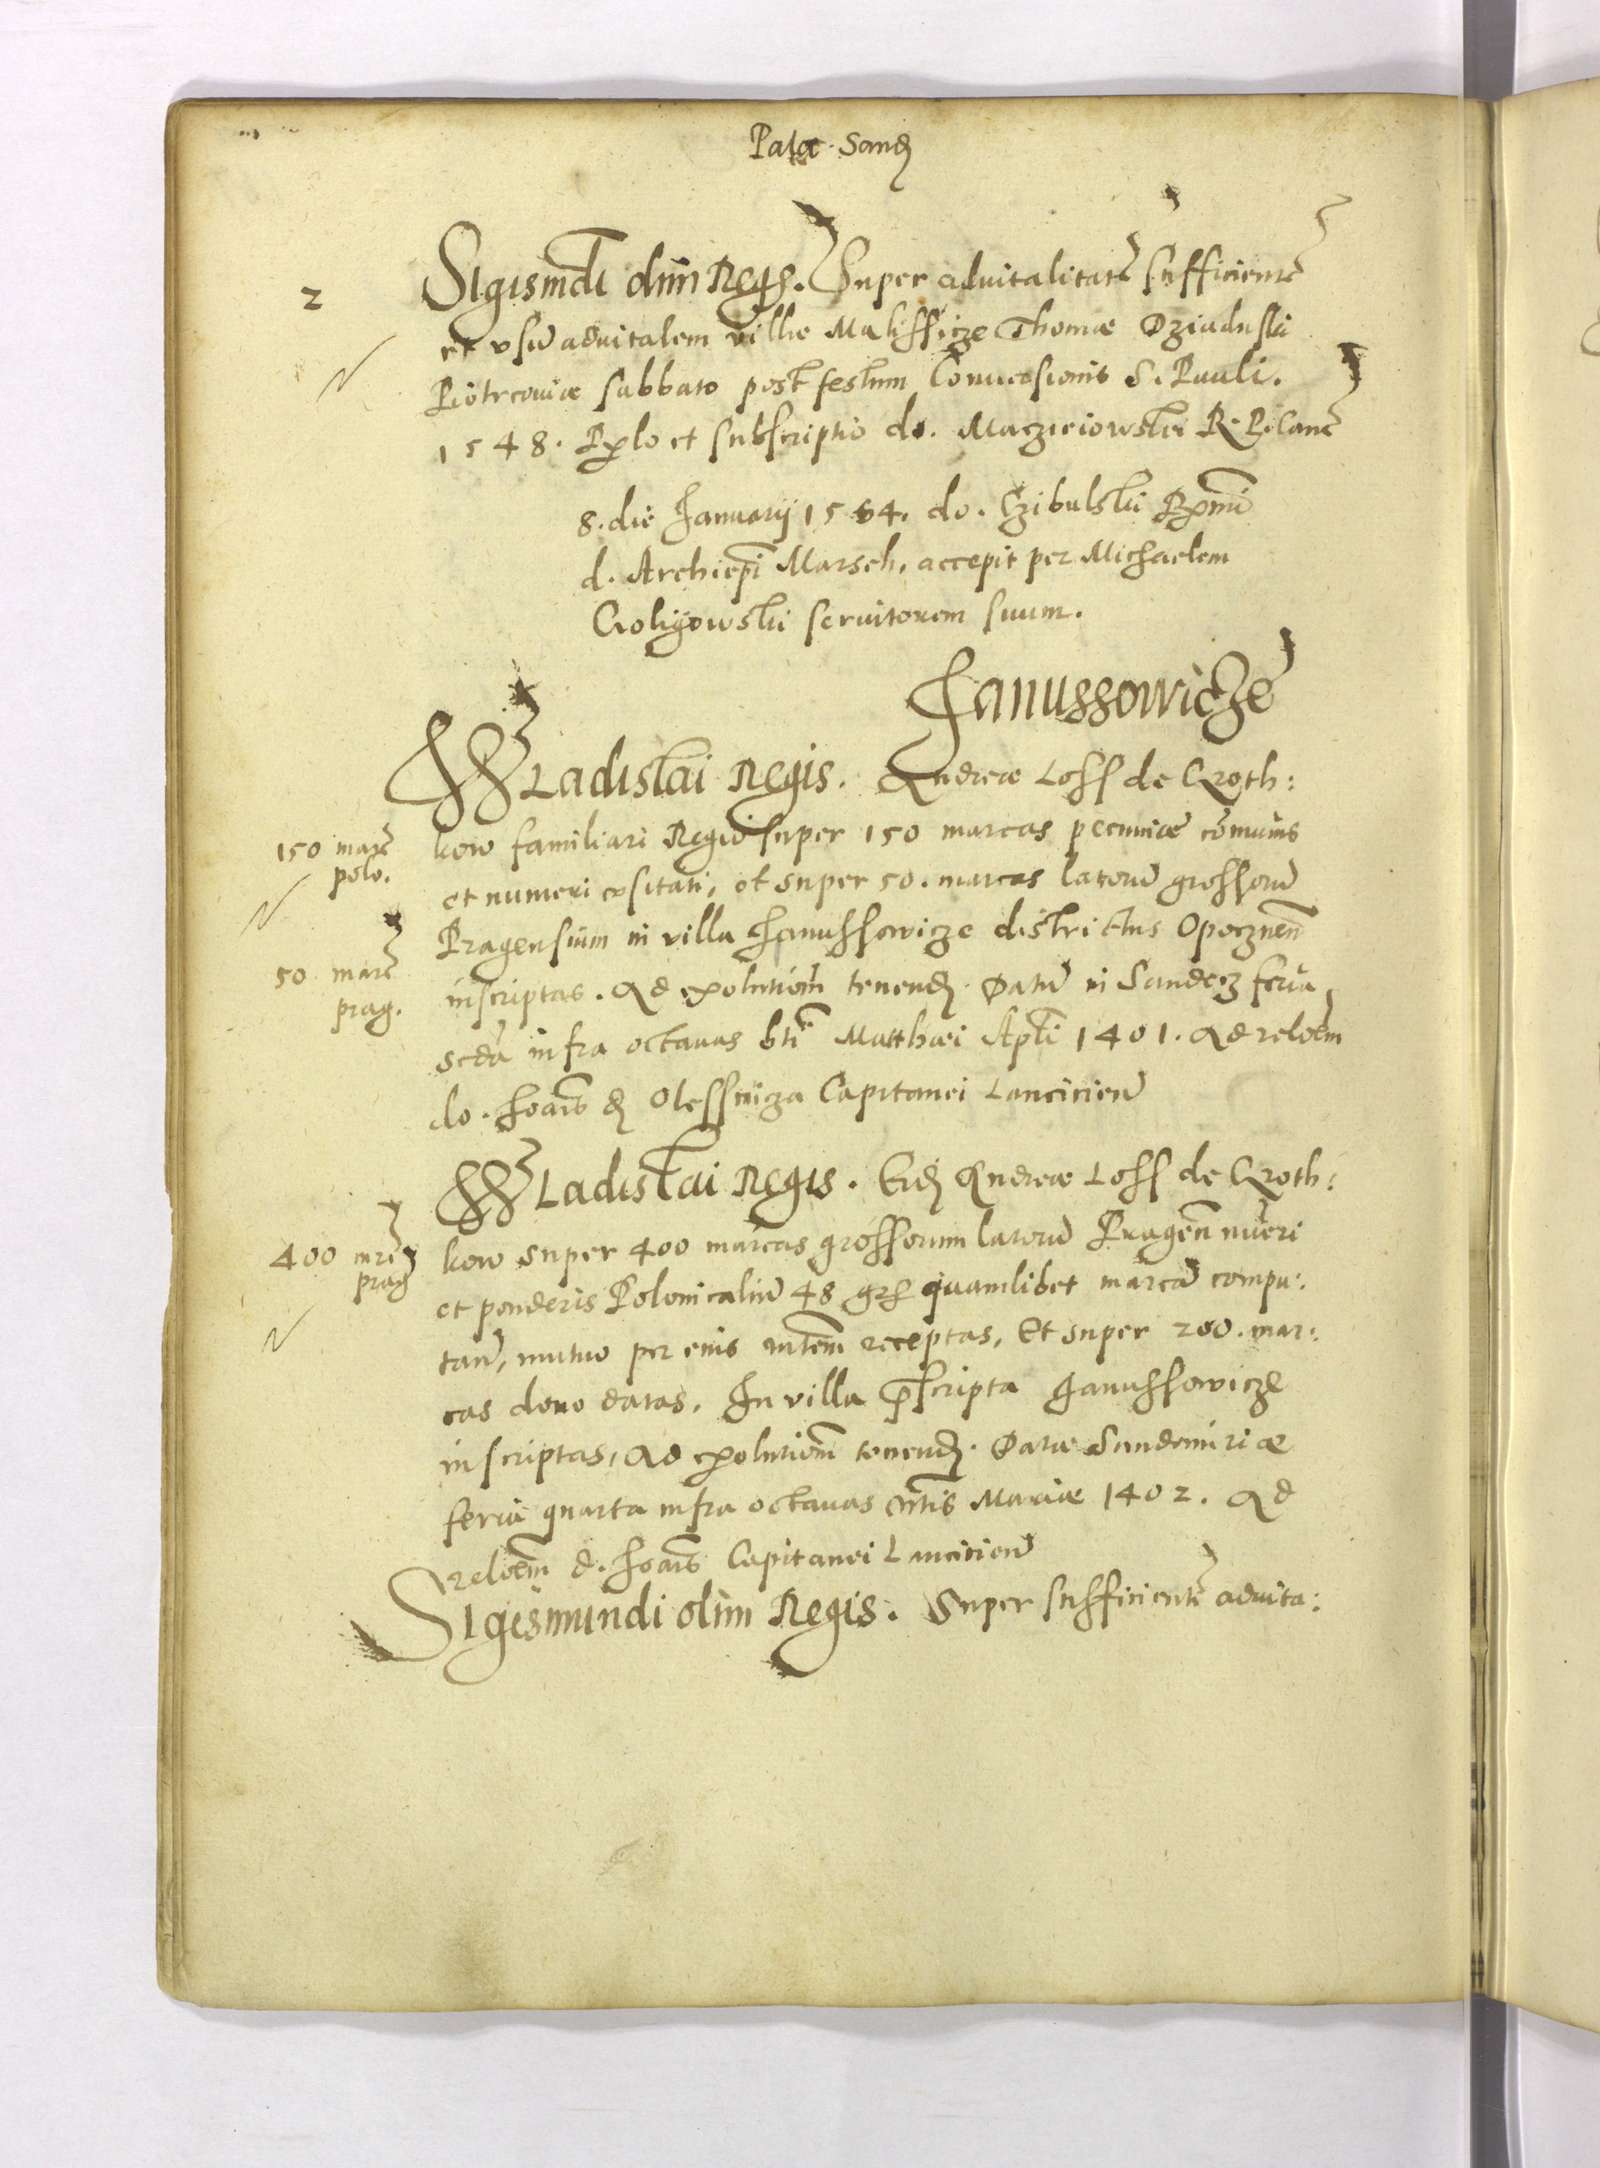 Pala. Sand
2
Sigismdi olim Regs. Super aduitalitate sufficiente
et vsu aduitalem villae Malissicze Thomae Dziaduski
Piotrcouiae sabbato post festum Conuersionis S. Pauli.
1548. Pplo et subscriptio do. Maczieiowski R. P. Canc
8. die Januarij 1564. do. Czibulski Rpmi
d. Archiepi Marsch. accepit per Michaelem
seruitorem suum.
Janussowicze
Wladislai Regis. Andreae Loss de Croth:
150 marc
polo.
kow familiari Regio super 150 marcas pecuniae comunis
et numeri vsitati, et super 50. marcas latoru grossoru
Pragensium in villa Janussowicze districtus Opocznen
50 marc
prag.
inscriptas. Ad exolutiom tenend. Datu in Sandecz feria
scda infra octauas bti Matthaei Apli 1401. Ad reloem
do. Joais d Olessnicza Capitanei Lancicien
Wladislai Regis. Eid Andreae Loss de Croth:
400 mrc
prag
kow super 400 marcas grossorum latoru Pragen nueri
et ponderis Polonicaliu 48 grs quamlibet marca compu:
tan, mutuo per eius mtem receptas, Et super 200. mar:
cas dono datas, In villa pscripta Janussowicze
inscriptas, Ad exolutiom tenend. Datae Sandomiriae
feria quarta infra octauas Mariae 1402. Ad
reloem d. Joais Capitanei Lancicien
Sigismundi olim Regis. Super sufficiente aduita: